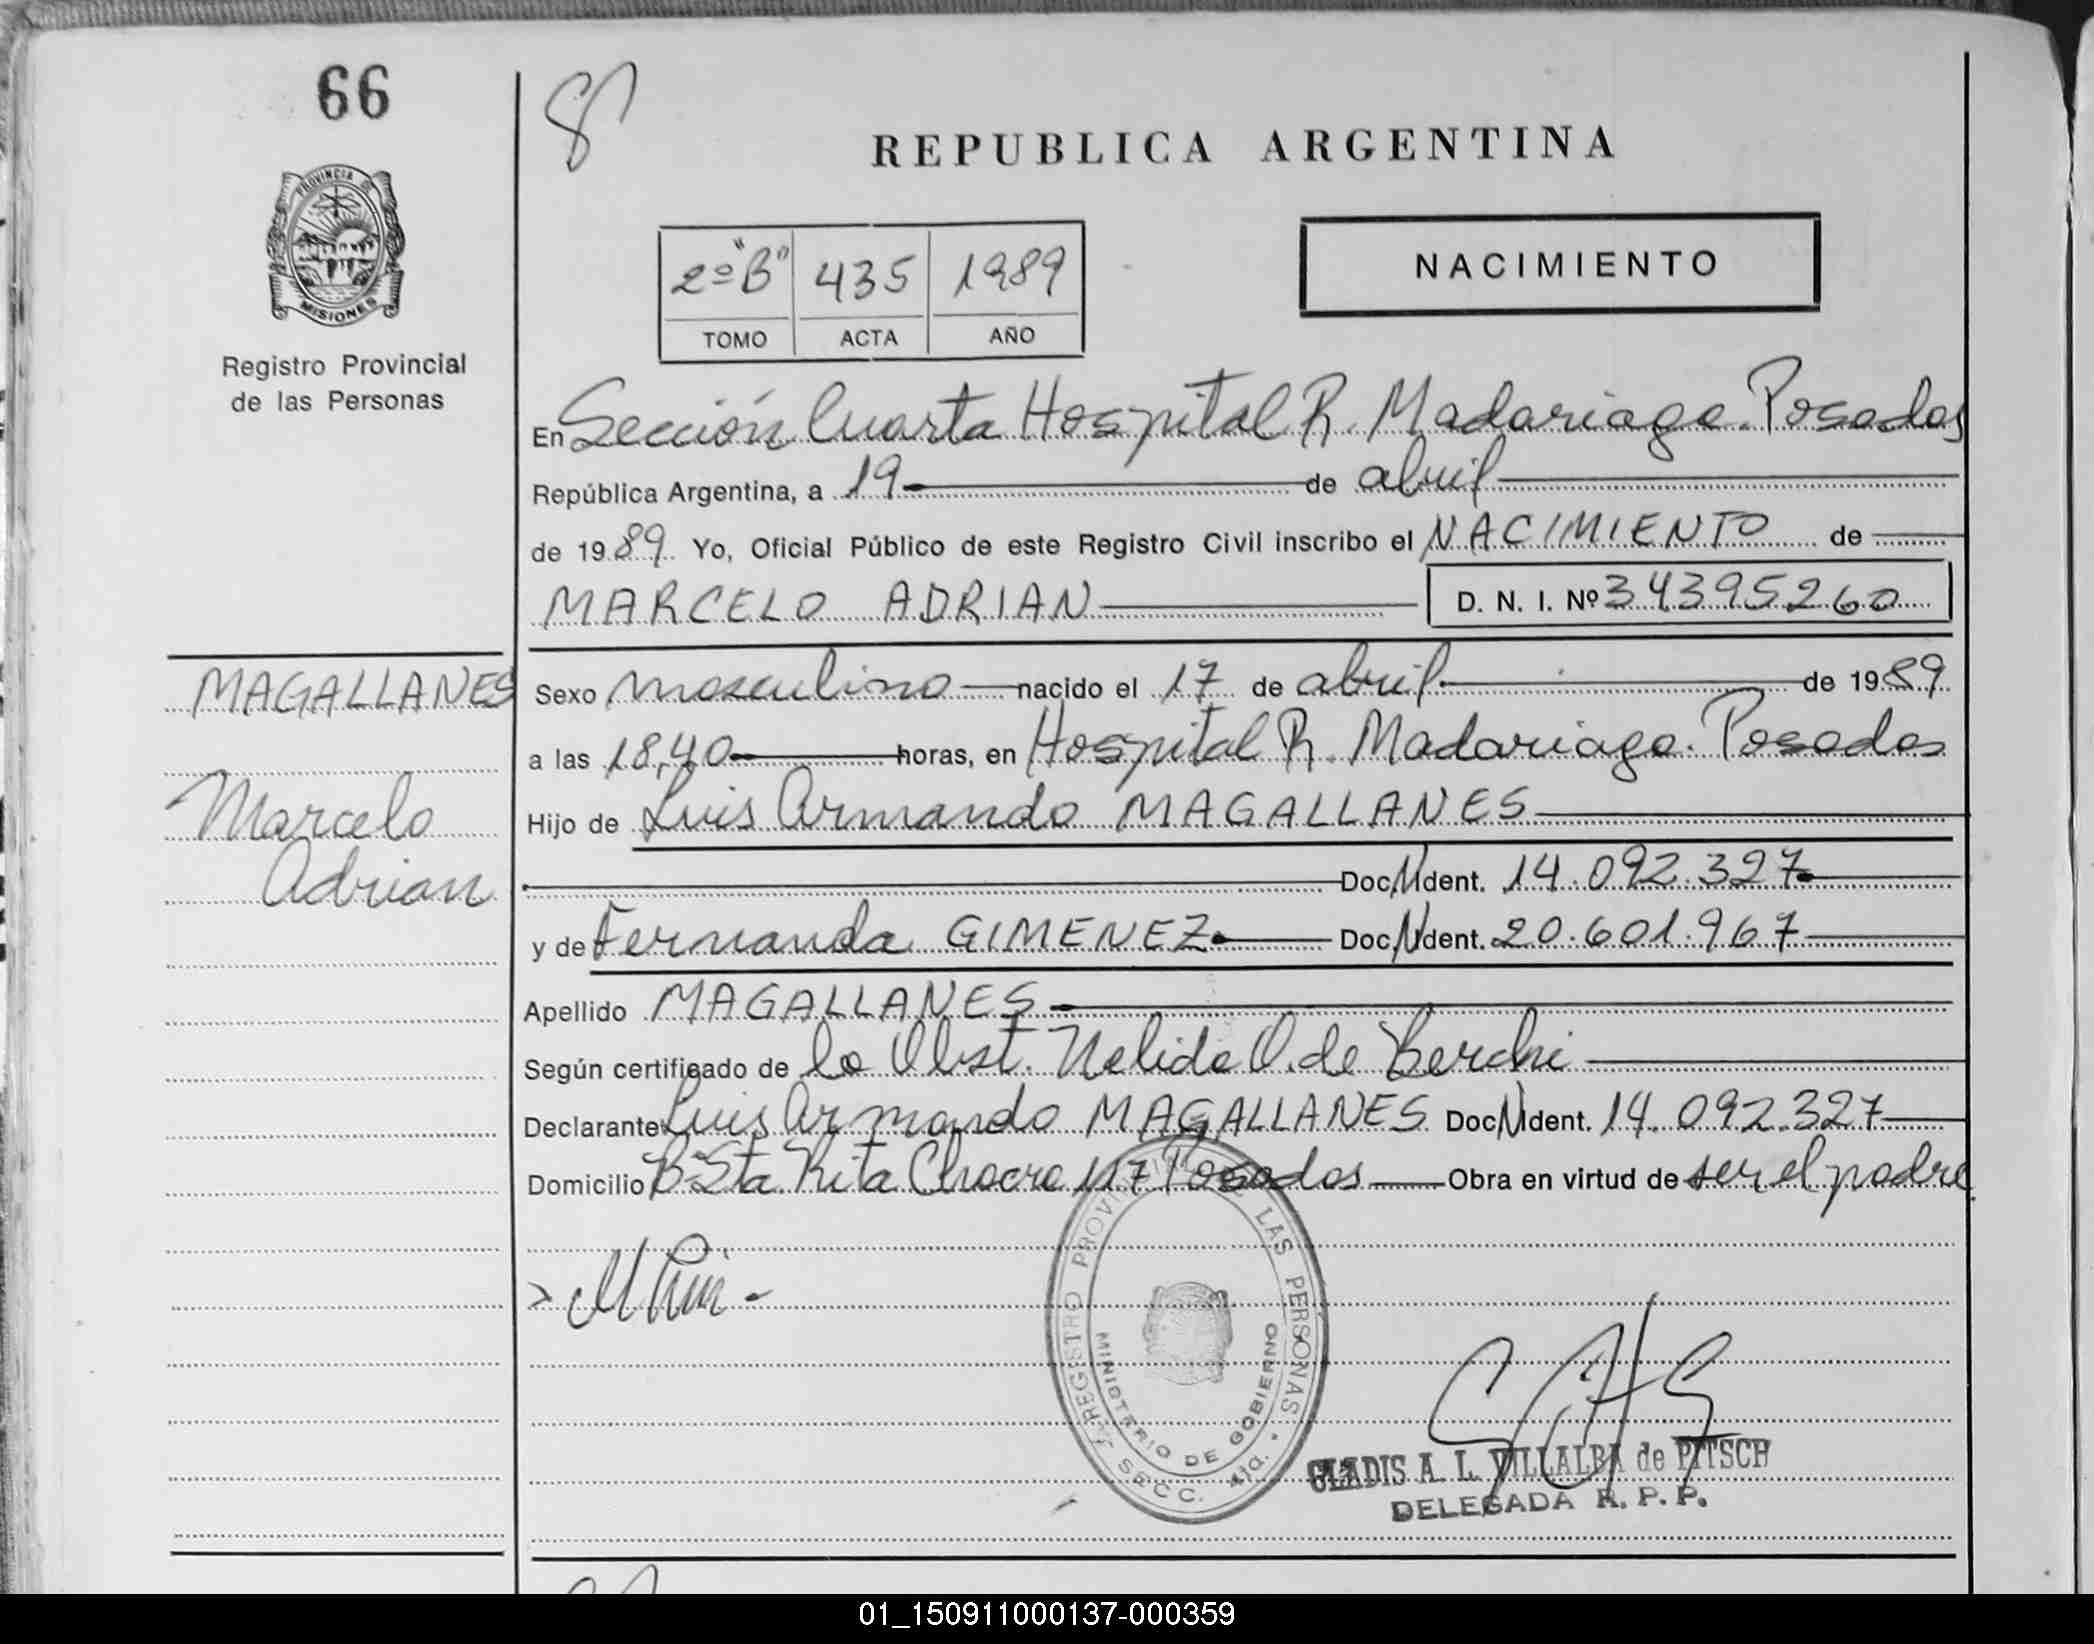 66
REPUBLICA ARGENTINA
PROVINCIA DE
MISIONES
Registro Provincial
de las Personas
2º "B" 435 1989
TOMO ACTA AÑO
NACIMIENTO
En Sección Cuarta Hospital R. Madariaga. Posadas
República Argentina, a 19 de abril
de 1989 Yo, Oficial Público de este Registro Civil inscribo el NACIMIENTO de
MARCELO ADRIAN D. N. I. Nº 34395260
MAGALLANES
Marcelo
Adrian
Sexo masculino nacido el 17 de abril de 1989
a las 18,40 horas, en Hospital R. Madariaga. Posadas
Hijo de Luis Armando MAGALLANES
Doc. N Ident. 14.092.327
y de Fernanda GIMENEZ Doc. N Ident. 20.601.967
Apellido MAGALLANES
Según certificado de la Obst. Nelida O. de Berchi
Declarante Luis Armando MAGALLANES Doc N Ident. 14.092.327
Domicilio Bº Sta. Rita Chacra 117 Posadas Obra en virtud de ser el padre
REGISTRO PROVINCIAL DE LAS PERSONAS
MINISTERIO DE GOBIERNO
SECC. 4ta.
GLADIS A. L. VILLALBA de PITSCH
DELEGADA R. P. P.
01_150911000137-000359